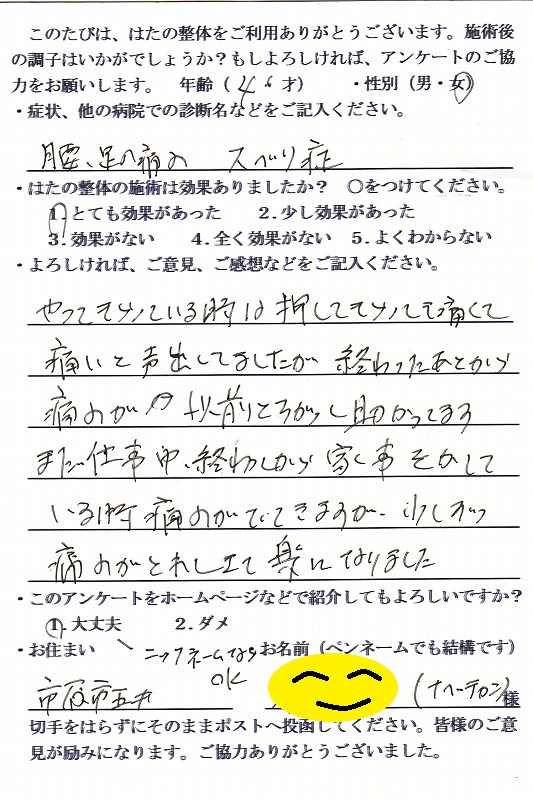 このたびは、はたの整体をご利用ありがとうございます。施術後
の調子はいかがでしょうか？もしよろしければ、アンケートのご協
力をお願いします。 年齢（46才） ・性別（男・女）
・症状、他の病院での診断名などをご記入ください。
腰、足の痛み スベリ症
・はたの整体の施術は効果ありましたか？ ○をつけてください。
1.とても効果があった 2.少し効果があった
3.効果がない 4.全く効果がない 5.よくわからない
・よろしければ、ご意見、ご感想などをご記入ください。
やってもらっている時は押してもらっても痛くて
痛いと声出してましたが終わったあとから
痛みが 以前とちがって助かってます
まだ仕事中、終わってから家く事をかして
いる時痛みがでてきますが、少しずつ
痛みがとれしてて楽になりました
・このアンケートをホームページなどで紹介してもよろしいですか？
1.大丈夫 2.ダメ
・お住まい ニックネームなら お名前（ペンネームでも結構です）
OK
市原市五井 様
切手をはらずにそのままポストへ投函してください。皆様のご意
見が励みになります。ご協力ありがとうございました。